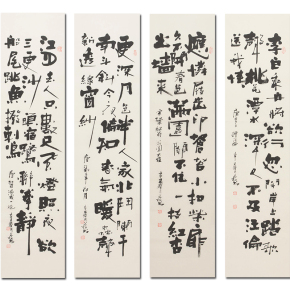 李白乘舟将欲行忽闻岸上踏歌
聲桃花潭水深千尺不及汪倫
送我情
應憐屐齒印蒼苔小扣柴扉
久不開春色滿園關不住一枝紅杏
出墻來
更深月色半人家北斗闌干
南斗斜今夜偏知春氣暖蟲聲
新透綠窗紗
江月去人只數尺風燈照夜欲
三更沙頭宿鷺聯拳靜
船尾跳魚撥剌鳴